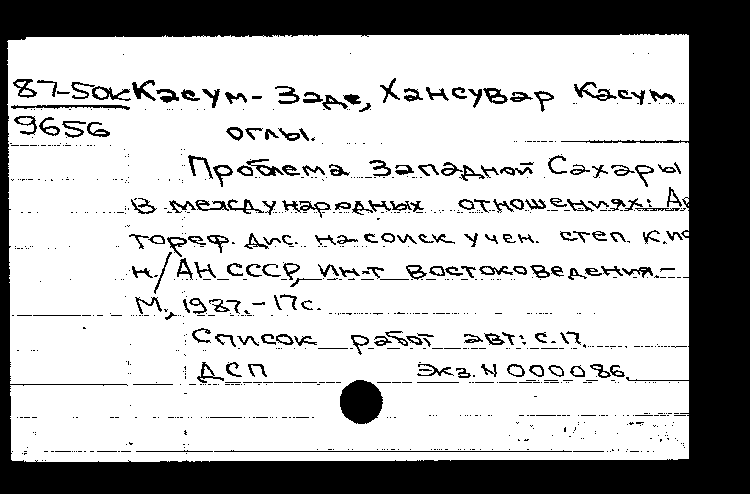 87-50к Касум-Заде, Хансувар Касум
9656 оглы.
Проблема Западной Сахары
в международных отношениях: Ав
тореф. дис. на соиск учен. степ. к.ис
н./АН СССР, Ин-т востоковедения.-
М., 1987.-17с.
Список работ авт: с.17.
ДСП Экз. N 000086.